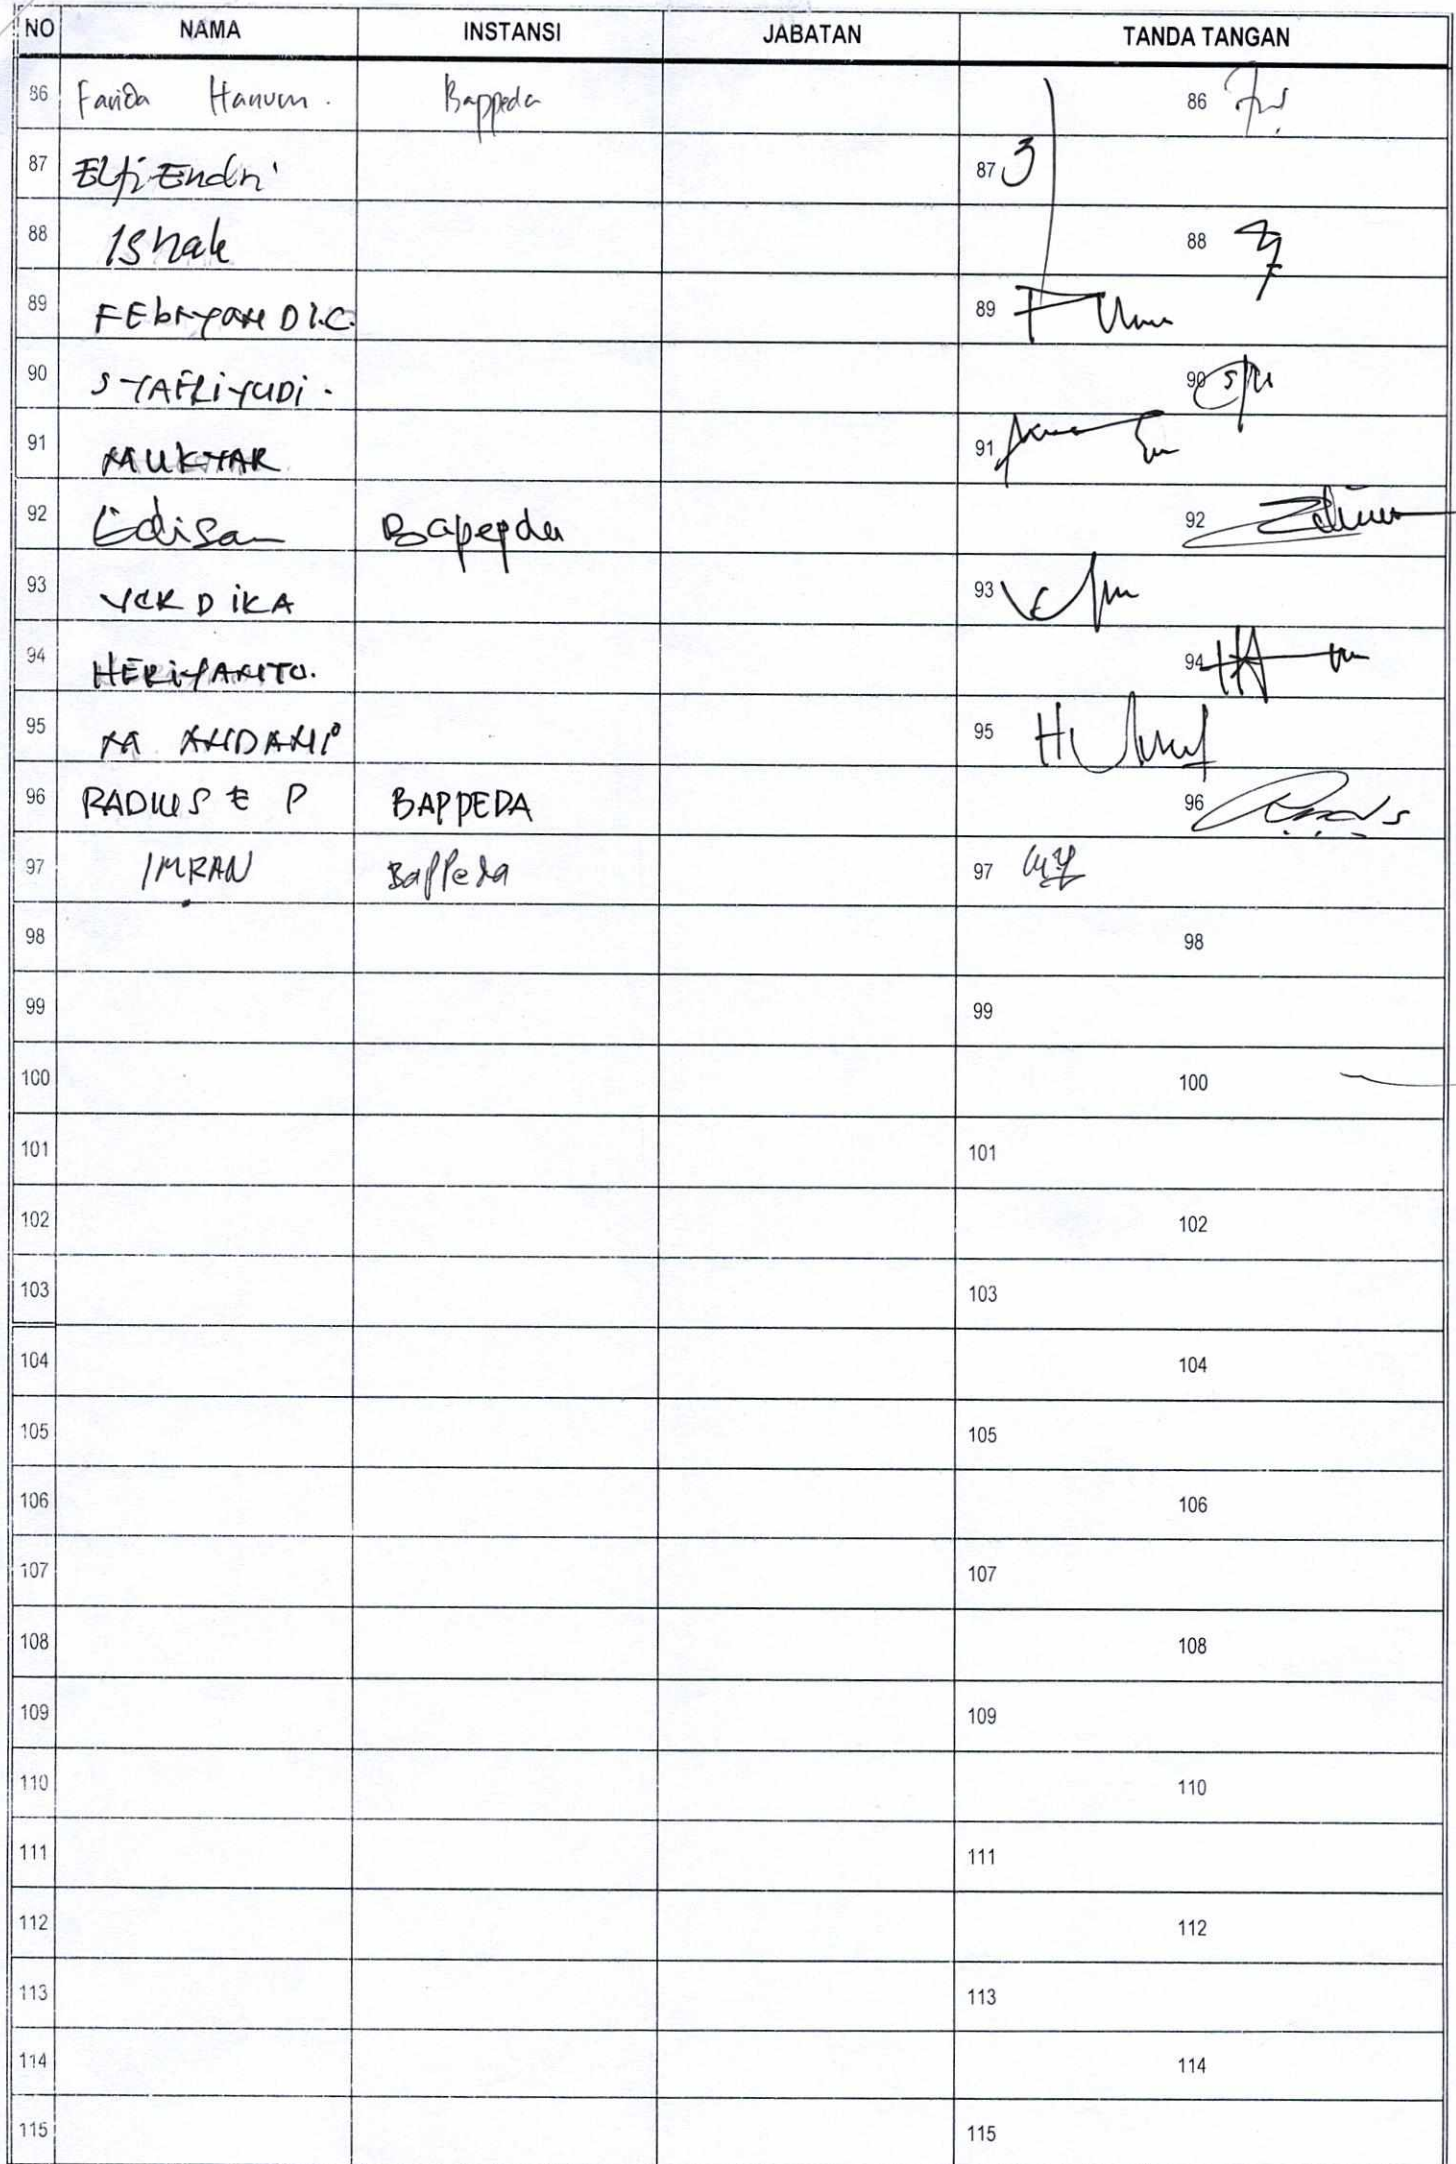 NO NAMA INSTANSI JABATAN TANDA TANGAN
86 Farida Hanum. Bappeda 86
87 Elfi Endri 87
88 Ishak 88
89 FEbryan DI.C. 89
90 SYAFRIYUDI. 90
91 MUKTAR 91
92 Edison Bapepda 92
93 YERDIKA 93
94 HERIYANTO. 94
95 M ANDANI 95
96 RADIUS E P BAPPEDA 96
97 IMRAN Bappeda 97
98 98
99 99
100 100
101 101
102 102
103 103
104 104
105 105
106 106
107 107
108 108
109 109
110 110
111 111
112 112
113 113
114 114
115 115